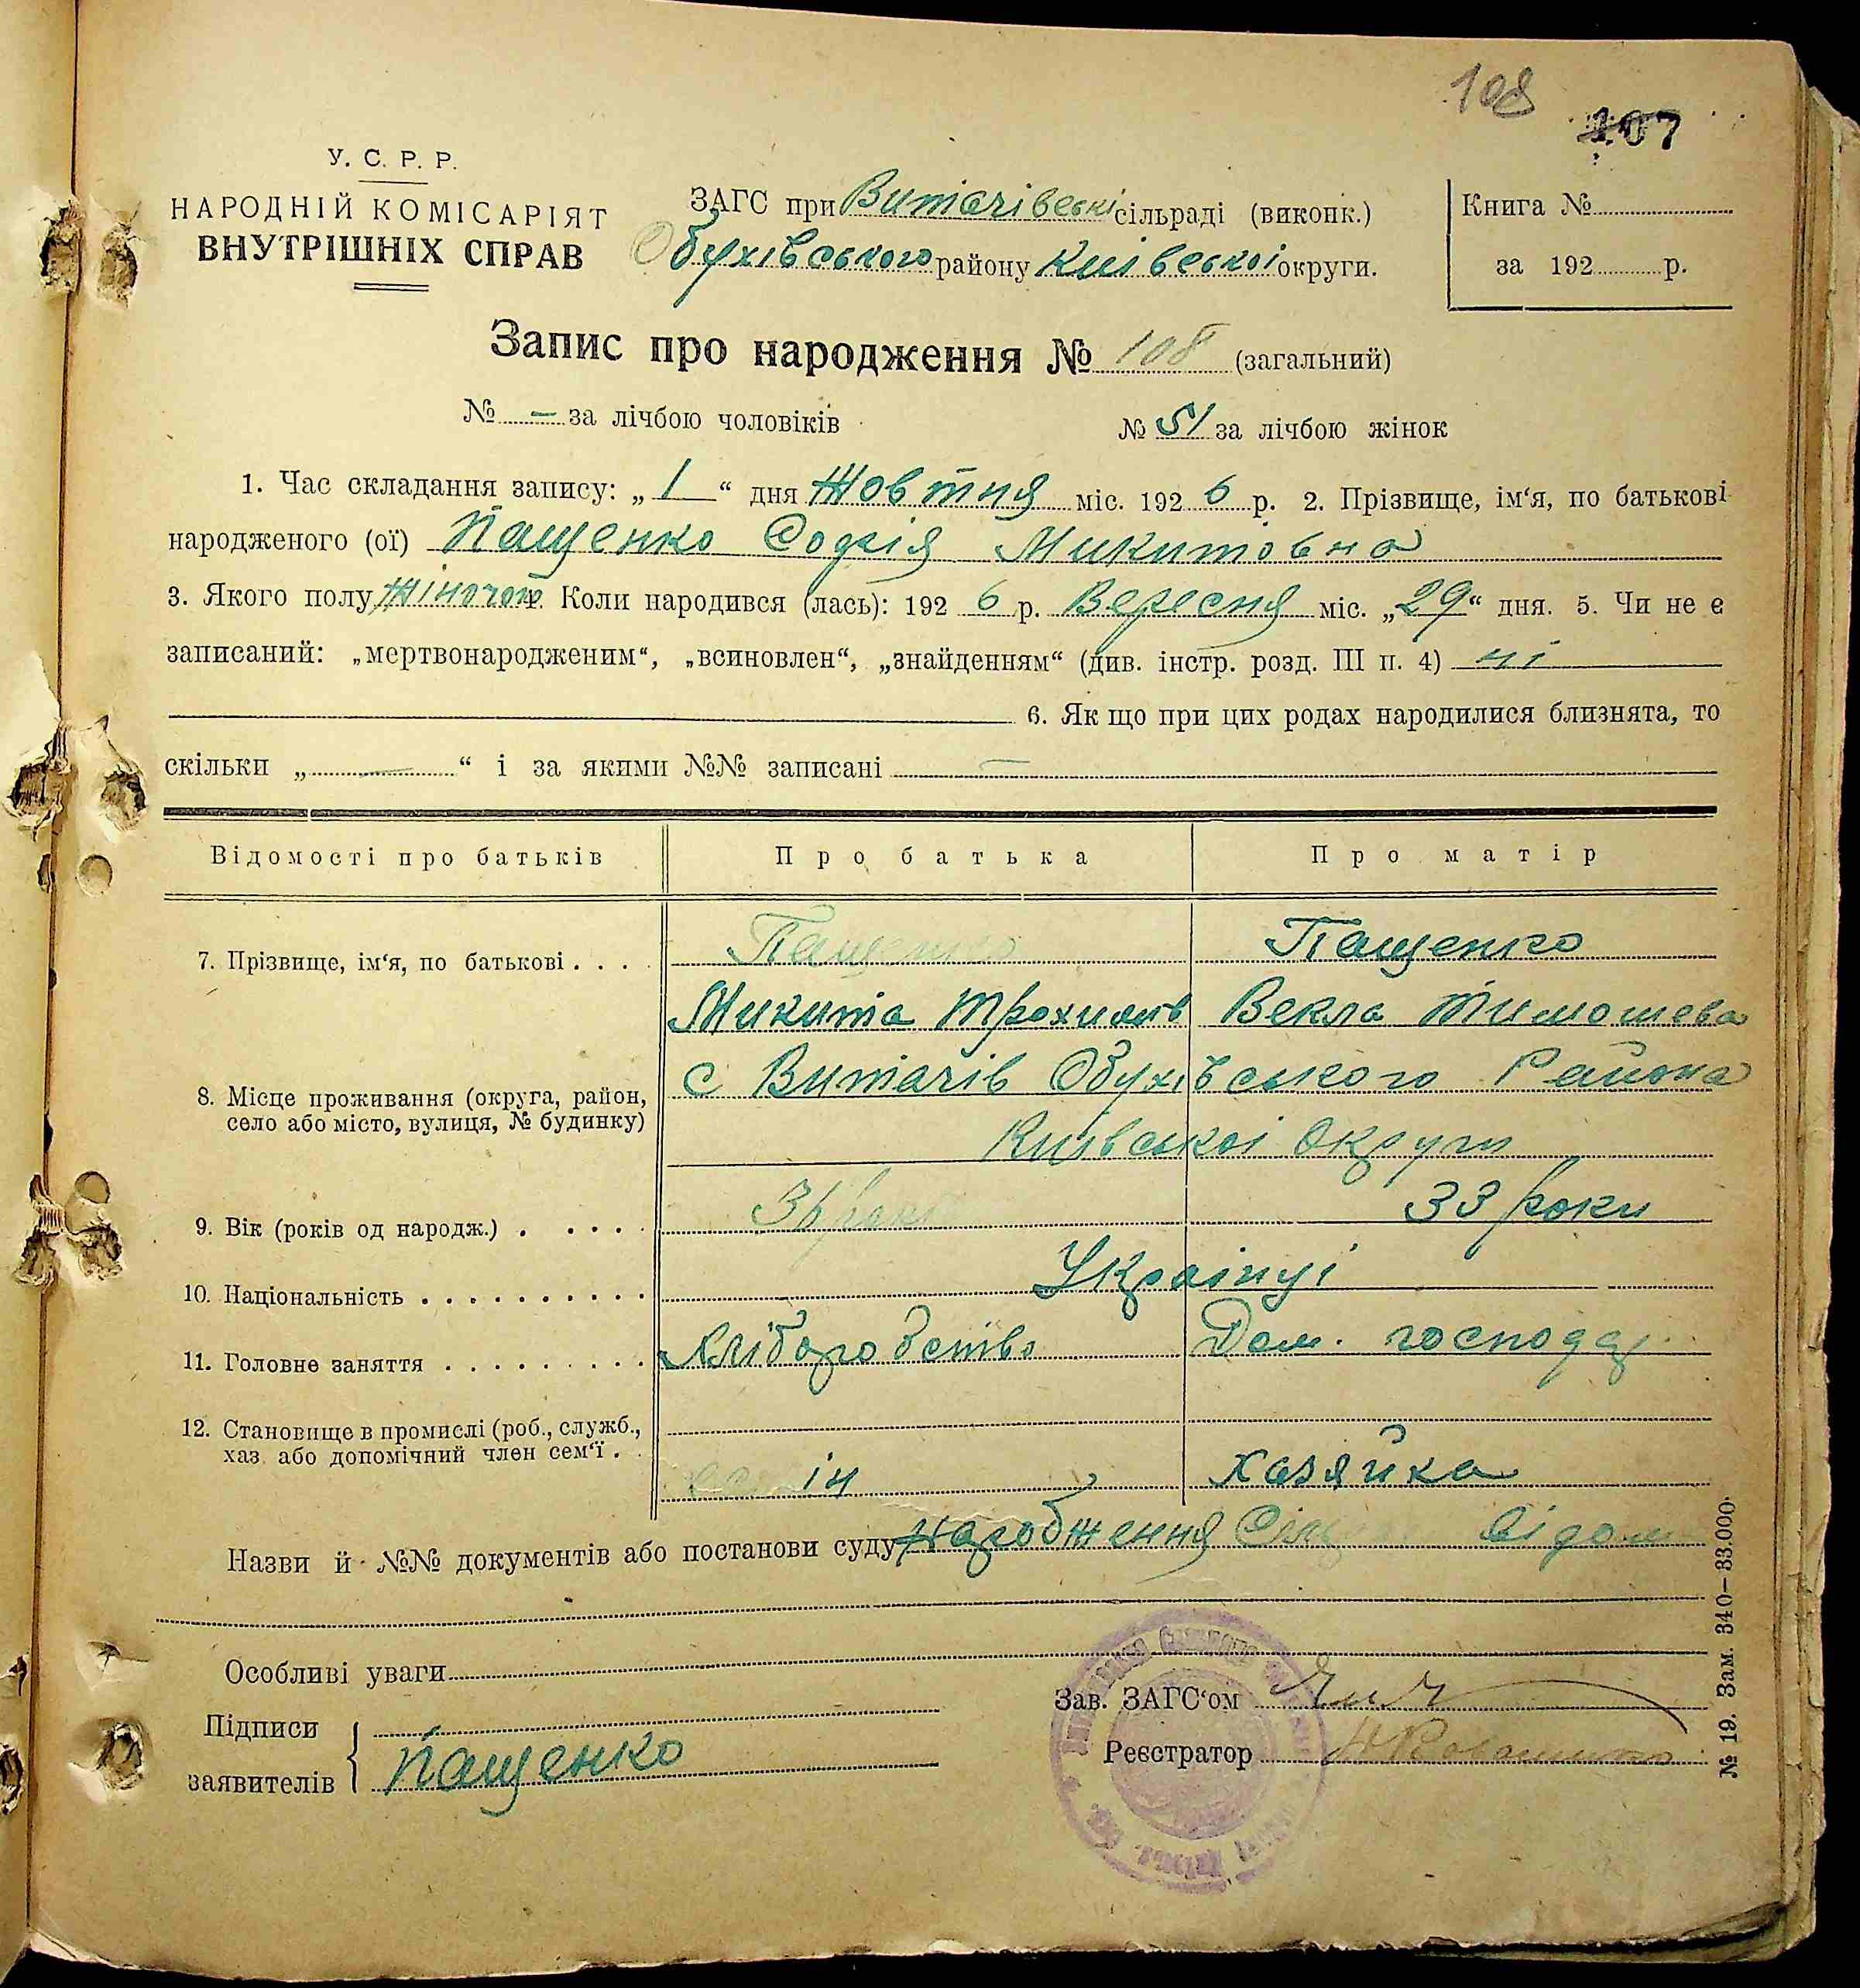 108
107
У. С. Р. Р.
НАРОДНІЙ КОМІСАРІЯТ
ВНУТРІШНІХ СПРАВ
ЗАГС при Витачівські сільраді (виконк.)
Обухівського району Київської округи.
Книга №
за 192 р.
Запис про народження № 108 (загальний)
№ — за лічбою чоловіків № 51 за лічбою жінок
1. Час складання запису: „ 1 “ дня Жовтня міс. 192 6 р. 2. Прізвище, ім‘я, по батькові
народженого (ої) Пащенко Софія Микитовна
3. Якого полу Жіночого Коли народився (лась): 192 6 р. Вересня міс. „ 29 “ дня. 5. Чи не є
записаний: „мертвонародженим“, „всиновлен“, „знайденням“ (див. інстр. розд. III п. 4) ні
6. Як що при цих родах народилися близнята, то
скільки „ — “ і за якими №№ записані —
Відомості про батьків Про батька Про матір
7. Прізвище, ім‘я, по батькові . . . . Пащенко Пащенко
Микита Трохимів Векла Тимошева
8. Місце проживання (округа, район, село або місто, вулиця, № будинку) с Витачів Обухівського Района
Київської Округи
9. Вік (років од народж.) . . . . . 36 роки 33 роки
10. Національність . . . . . . . . . . Українці
11. Головне заняття . . . . . . . . . Хліборобство Дом. господар.
12. Становище в промислі (роб., служб.,
хаз. або допомічний член сем‘ї . . Хазяйка
Назви й №№ документів або постанови суду народження
Особливі уваги
Підписи
заявителів Пащенко
Зав. ЗАГС‘ом
Реєстратор
№ 19. Зам. 340–33.000.